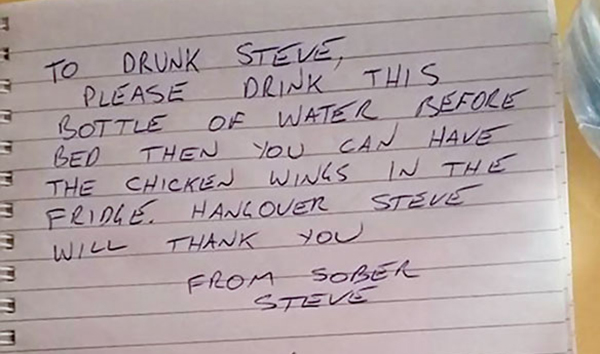 TO DRUNK STEVE,
PLEASE DRINK THIS
BOTTLE OF WATER BEFORE
BED THEN YOU CAN HAVE
THE CHICKEN WINGS IN THE
FRIDGE. HANGOVER STEVE
WILL THANK YOU
FROM SOBER
STEVE